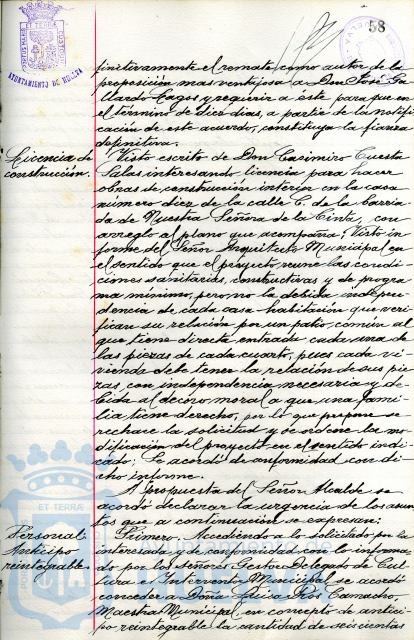 58
AYUNTAMIENTO DE HUELVA
finitivamente el remate como autor de la
proposición mas ventajosa a Don José Ga-
llardo Lagos y requerir a éste para que en
el término de diez dias, a partir de la notifi-
cación de este acuerdo, constituya la fianza
definitiva.
Licencia de
construcción.
Visto escrito de Don Casimiro Cuesta
Salas interesando licencia para hacer
obras de construcción interior en la casa
número diez de la calle C. de la barria-
da de Nuestra Señora de la Cinta, con
arreglo al plano que acompaña; Visto in-
forme del Señor Arquitecto Municipal en
el sentido que el proyecto, reune las condi-
ciones sanitarias, constructivas y de progra-
ma mínimo, pero, no la debida indepen-
dencia de cada casa habitación que veri-
fican su relación por un patio, común al
que tiene directa entrada cada una de
las piezas de cada cuarto, pues cada vi-
vienda debe tener la relación de sus pie-
zas, con independencia necesaria y de-
bida al decoro moral a que una fami-
lia tiene derecho, por lo que propone se
rechace la solicitud y se ordene la mo-
dificación del proyecto en el sentido indi-
cado; Se acordó de conformidad con di-
cho informe.
A propuesta del Señor Alcalde se
acordó declarar la urgencia de los asun-
tos que a continuación se expresan:
Personal:
Anticipo
reintegrable.
Primero: Accediendo a lo solicitado por la
interesada y de conformidad con lo informa-
do por los Señores Gestor Delegado de Cul-
tura e Interventor Municipal se acordó
conceder a Doña Luisa Ros Camacho,
Maestra Municipal, en concepto de antici-
po reintegrable la cantidad de seiscientas
ET TERRÆ
Ayuntamiento de